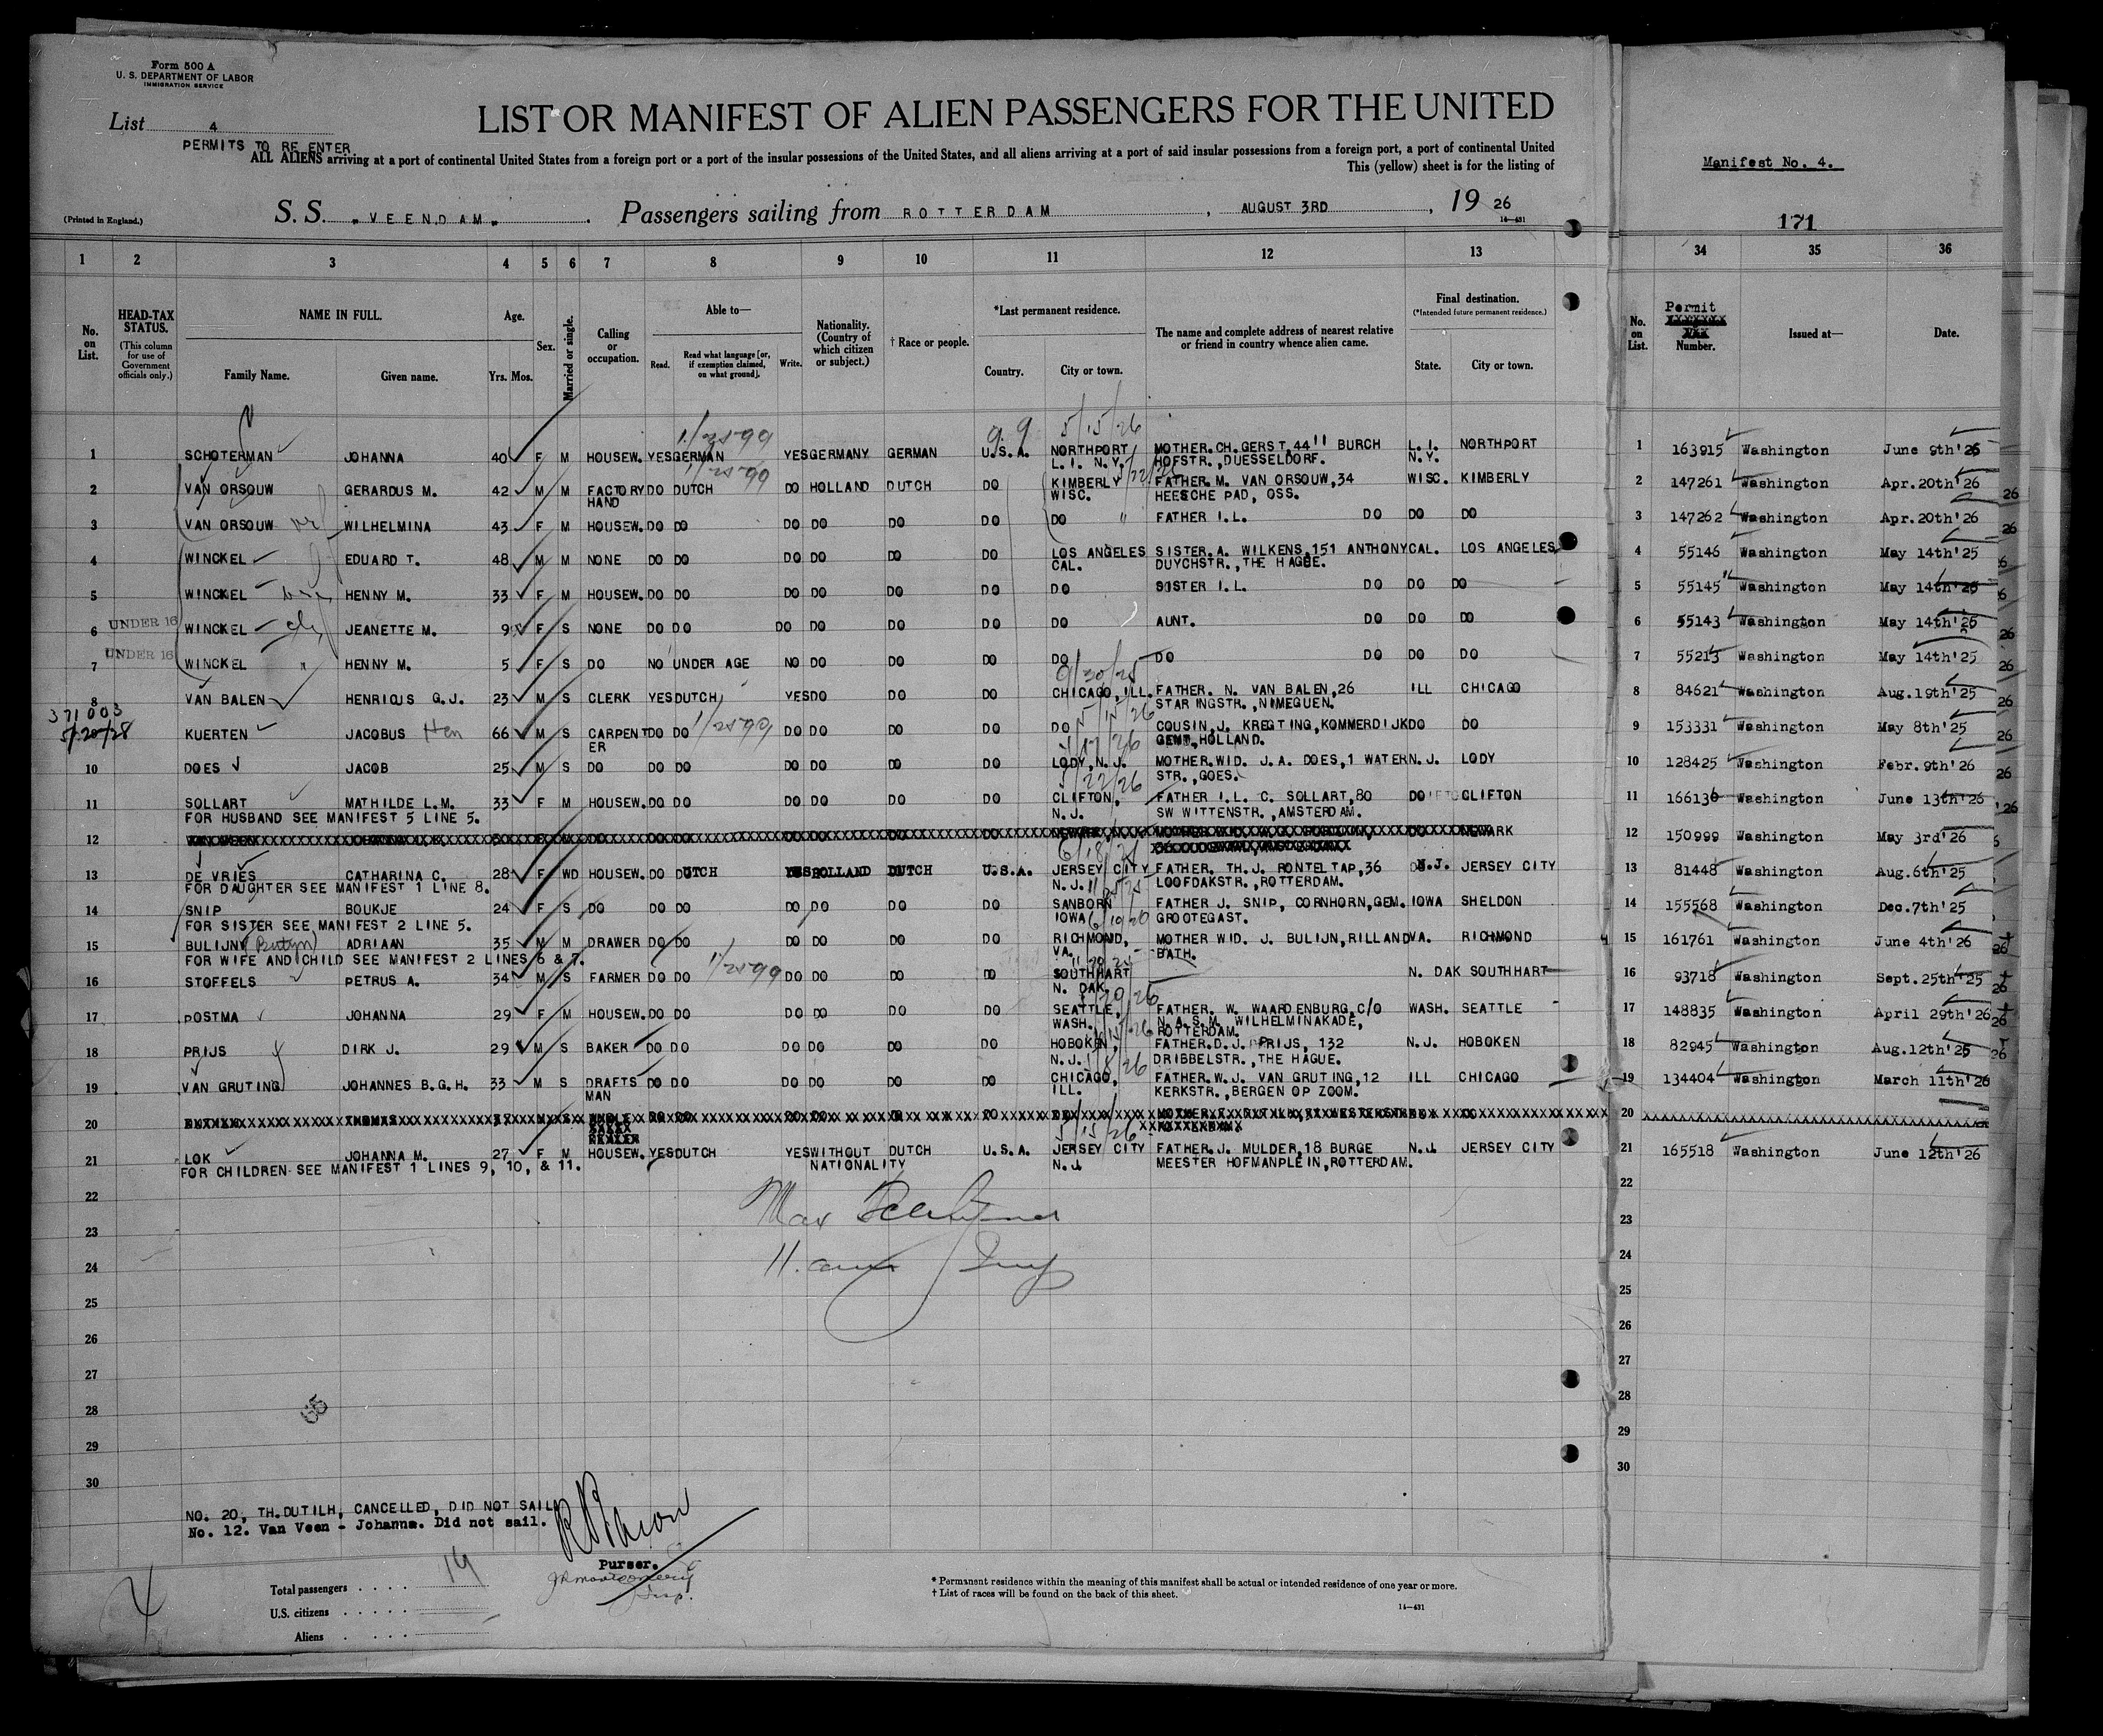 Form 500 A
U. S. DEPARTMENT OF LABOR
IMMIGRATION SERVICE
List 4
PERMITS TO RE ENTER
LIST OR MANIFEST OF ALIEN PASSENGERS FOR THE UNITED
ALL ALIENS arriving at a port of continental United States from a foreign port or a port of the insular possessions of the United States, and all aliens arriving at a port of said insular possessions from a foreign port, a port of continental United
This (yellow) sheet is for the listing of
(Printed in England.)
S. S. "VEENDAM" Passengers sailing from ROTTERDAM, AUGUST 3RD, 19 26
14—431
Manifest No. 4.
171
1 2 3 4 5 6 7 8 9 10 11 12 13 34 35 36
No. on List.
HEAD-TAX STATUS.
(This column for use of Government officials only.)
NAME IN FULL.
Family Name. Given name.
Age.
Yrs. Mos.
Sex.
Married or single.
Calling or occupation.
Able to—
Read. Read what language [or, if exemption claimed, on what ground]. Write.
Nationality. (Country of which citizen or subject.)
† Race or people.
*Last permanent residence.
Country. City or town.
The name and complete address of nearest relative or friend in country whence alien came.
Final destination.
(*Intended future permanent residence.)
State. City or town.
No. on List.
Permit Number.
Issued at—
Date.
1/2599 5/15/26
1 SCHOTERMAN JOHANNA 40 F M HOUSEW. YES GERMAN YES GERMANY GERMAN U.S.A. NORTHPORT MOTHER.CH.GERST,44II BURCH L.I. NORTHPORT 1 163915 Washington June 9th'26
L.I. N.Y. HOFSTR.,DUESSELDORF. N.Y.
2 VAN ORSOUW GERARDUS M. 42 M M FACTORY DO DUTCH DO HOLLAND DUTCH DO KIMBERLY FATHER.M. VAN ORSOUW,34 WISC. KIMBERLY 2 147261 Washington Apr.20th'26
HAND WISC. HEESCHE PAD, OSS.
3 VAN ORSOUW WILHELMINA 43 F M HOUSEW. DO DO DO DO DO DO DO " FATHER I.L. DO DO DO 3 147262 Washington Apr.20th'26
4 WINCKEL EDUARD T. 48 M M NONE DO DO DO DO DO DO LOS ANGELES SISTER.A. WILKENS,151 ANTHONY CAL. LOS ANGELES 4 55146 Washington May 14th'25
CAL. DUYCHSTR.,THE HAGUE.
5 WINCKEL HENNY M. 33 F M HOUSEW. DO DO DO DO DO DO DO SISTER I.L. DO DO DO 5 55145 Washington May 14th'25
UNDER 16
6 WINCKEL JEANETTE M. 9 F S NONE DO DO DO DO DO DO DO AUNT. DO DO DO 6 55143 Washington May 14th'25
UNDER 16
7 WINCKEL HENNY M. 5 F S DO NO UNDER AGE NO DO DO DO DO DO DO DO DO 7 55213 Washington May 14th'25
8 VAN BALEN HENRICUS G.J. 23 M S CLERK YES DUTCH YES DO DO DO CHICAGO, ILL. FATHER. N. VAN BALEN,26 ILL CHICAGO 8 84621 Washington Aug.19th'25
STARINGSTR.,NIMEGUEN.
371003
5/20/28
KUERTEN JACOBUS Hen 66 M S CARPENTER DO DO DO DO DO DO DO COUSIN,J. KREGTING,KOMMERDIJK DO DO 9 153331 Washington May 8th'25
GENT,HOLLAND.
10 DOES JACOB 25 M S DO DO DO DO DO DO DO LODY,N.J. MOTHER.WID. J.A. DOES,1 WATER N.J. LODY 10 128425 Washington Febr.9th'26
STR.,GOES.
5/22/26
11 SOLLART MATHILDE L.M. 33 F M HOUSEW. DO DO DO DO DO DO CLIFTON, FATHER I.L. C. SOLLART,80 DO CLIFTON 11 166136 Washington June 13th'26
FOR HUSBAND SEE MANIFEST 5 LINE 5. N.J. SW WITTENSTR.,AMSTERDAM.
12 NEWARK 12 150999 Washington May 3rd'26
13 DE VRIES CATHARINA C. 28 F WD HOUSEW. DO DUTCH YES HOLLAND DUTCH U.S.A. JERSEY CITY FATHER. TH.J. RONTELTAP,36 N.J. JERSEY CITY 13 81448 Washington Aug.6th'25
FOR DAUGHTER SEE MANIFEST 1 LINE 8. N.J. LOOFDAKSTR.,ROTTERDAM.
14 SNIP BOUKJE 24 F S DO DO DO DO DO DO DO SANBORN FATHER J. SNIP, CORNHORN,GEM. IOWA SHELDON 14 155568 Washington Dec.7th'25
FOR SISTER SEE MANIFEST 2 LINE 5. IOWA GROOTEGAST.
15 BULIJN ADRIAAN 35 M M DRAWER DO DO DO DO DO DO RICHMOND, MOTHER WID. J. BULIJN,RILLAND VA. RICHMOND 15 161761 Washington June 4th'26
FOR WIFE AND CHILD SEE MANIFEST 2 LINES 6 & 7. VA. BATH.
16 STOFFELS PETRUS A. 34 M S FARMER DO DO 1/2599 DO DO DO DO SOUTHHART N. DAK SOUTHHART 16 93718 Washington Sept.25th'25
N. DAK.
17 POSTMA JOHANNA 29 F M HOUSEW. DO DO DO DO DO DO SEATTLE, FATHER. W. WAARDENBURG,C/O WASH. SEATTLE 17 148835 Washington April 29th'26
WASH. N.A.S.M. WILHELMINAKADE,
ROTTERDAM.
18 PRIJS DIRK J. 29 M S BAKER DO DO DO DO DO DO HOBOKEN, FATHER.D.J. PRIJS, 132 N.J. HOBOKEN 18 82945 Washington Aug.12th'25
N.J. DRIBBELSTR.,THE HAGUE.
19 VAN GRUTING JOHANNES B.G.H. 33 M S DRAFTS DO DO DO DO DO DO CHICAGO, FATHER.W.J. VAN GRUTING,12 ILL CHICAGO 19 134404 Washington March 11th'26
MAN ILL. KERKSTR.,BERGEN OP ZOOM.
20 20
5/15/26
21 LOK JOHANNA M. 27 F M HOUSEW. YES DUTCH YES WITHOUT DUTCH U.S.A. JERSEY CITY FATHER.J. MULDER,18 BURGE N.J. JERSEY CITY 21 165518 Washington June 12th'26
FOR CHILDREN SEE MANIFEST 1 LINES 9, 10, & 11. NATIONALITY N.J. MEESTER HOFMANPLEIN,ROTTERDAM.
22 22
23 23
24 24
25 25
26 26
27 27
28 28
29 29
30 30
NO. 20, TH.DUTILH, CANCELLED, DID NOT SAIL.
No. 12. Van Veen - Johanna. Did not sail.
Purser.
Total passengers 19
U.S. citizens
Aliens
* Permanent residence within the meaning of this manifest shall be actual or intended residence of one year or more.
† List of races will be found on the back of this sheet.
14—431